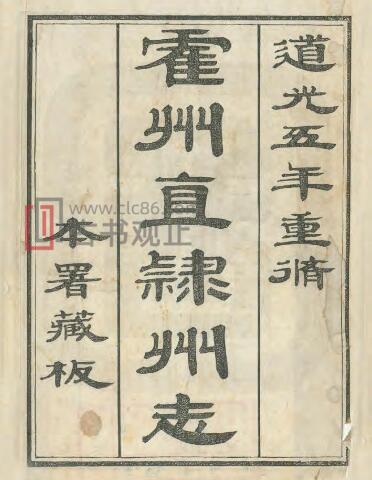 道光五年重脩
霍州直隸州志
本署藏板
www.clc86.com
各书观正